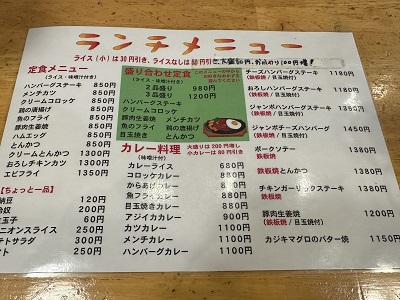 ランチメニュー
ライス(小)は30円引き、ライスなしは80円引き
ご飯大盛50円、
100円増!
定食メニュー
(ライス・味噌汁付き)
ハンバーグステーキ 850円
メンチカツ 850円
クリームコロッケ 850円
鶏の唐揚げ 850円
魚のフライ 850円
豚肉生姜焼 850円
ハムエッグ 850円
とんかつ 850円
クリームとんかつ 1300円
おろしチキンカツ 1100円
エビフライ 1350円
【ちょっと一品】
納豆 120円
冷奴 200円
生玉子 60円
オニオンスライス 300円
ポテトサラダ 300円
250円
盛り合わせ定食
(ライス・味噌汁付き)
このメニューの中から
お好きなおかずを
選んでください。
2品盛り 980円
3品盛り 1200円
ハンバーグステーキ
クリームコロッケ
豚肉生姜焼 メンチカツ
魚のフライ 鶏の唐揚げ
目玉焼き とんかつ
カレー料理
(味噌汁付)
大盛りは200円増し
小カレーは80円引き
カレーライス 680円
コロッケカレー 880円
からあげカレー 880円
魚フライカレー 880円
目玉焼きカレー 780円
アジイカカレー 900円
カツカレー 1100円
メンチカレー 900円
ハンバーグカレー 900円
チーズハンバーグステーキ 1180円
(鉄板焼/目玉焼付)
おろしハンバーグステーキ 1180円
(鉄板焼/目玉焼付)
ジャンボハンバーグステーキ 1350円
(鉄板焼/目玉焼付)
ジャンボチーズハンバーグ 1450円
(鉄板焼/目玉焼付)
ポークソテー 1380円
(鉄板焼)
鉄板焼とんかつ 1380円
チキンガーリックステーキ 1380円
(鉄板焼)
豚肉生姜焼 1200円
(鉄板焼/目玉焼付)
カジキマグロのバター焼 1150円